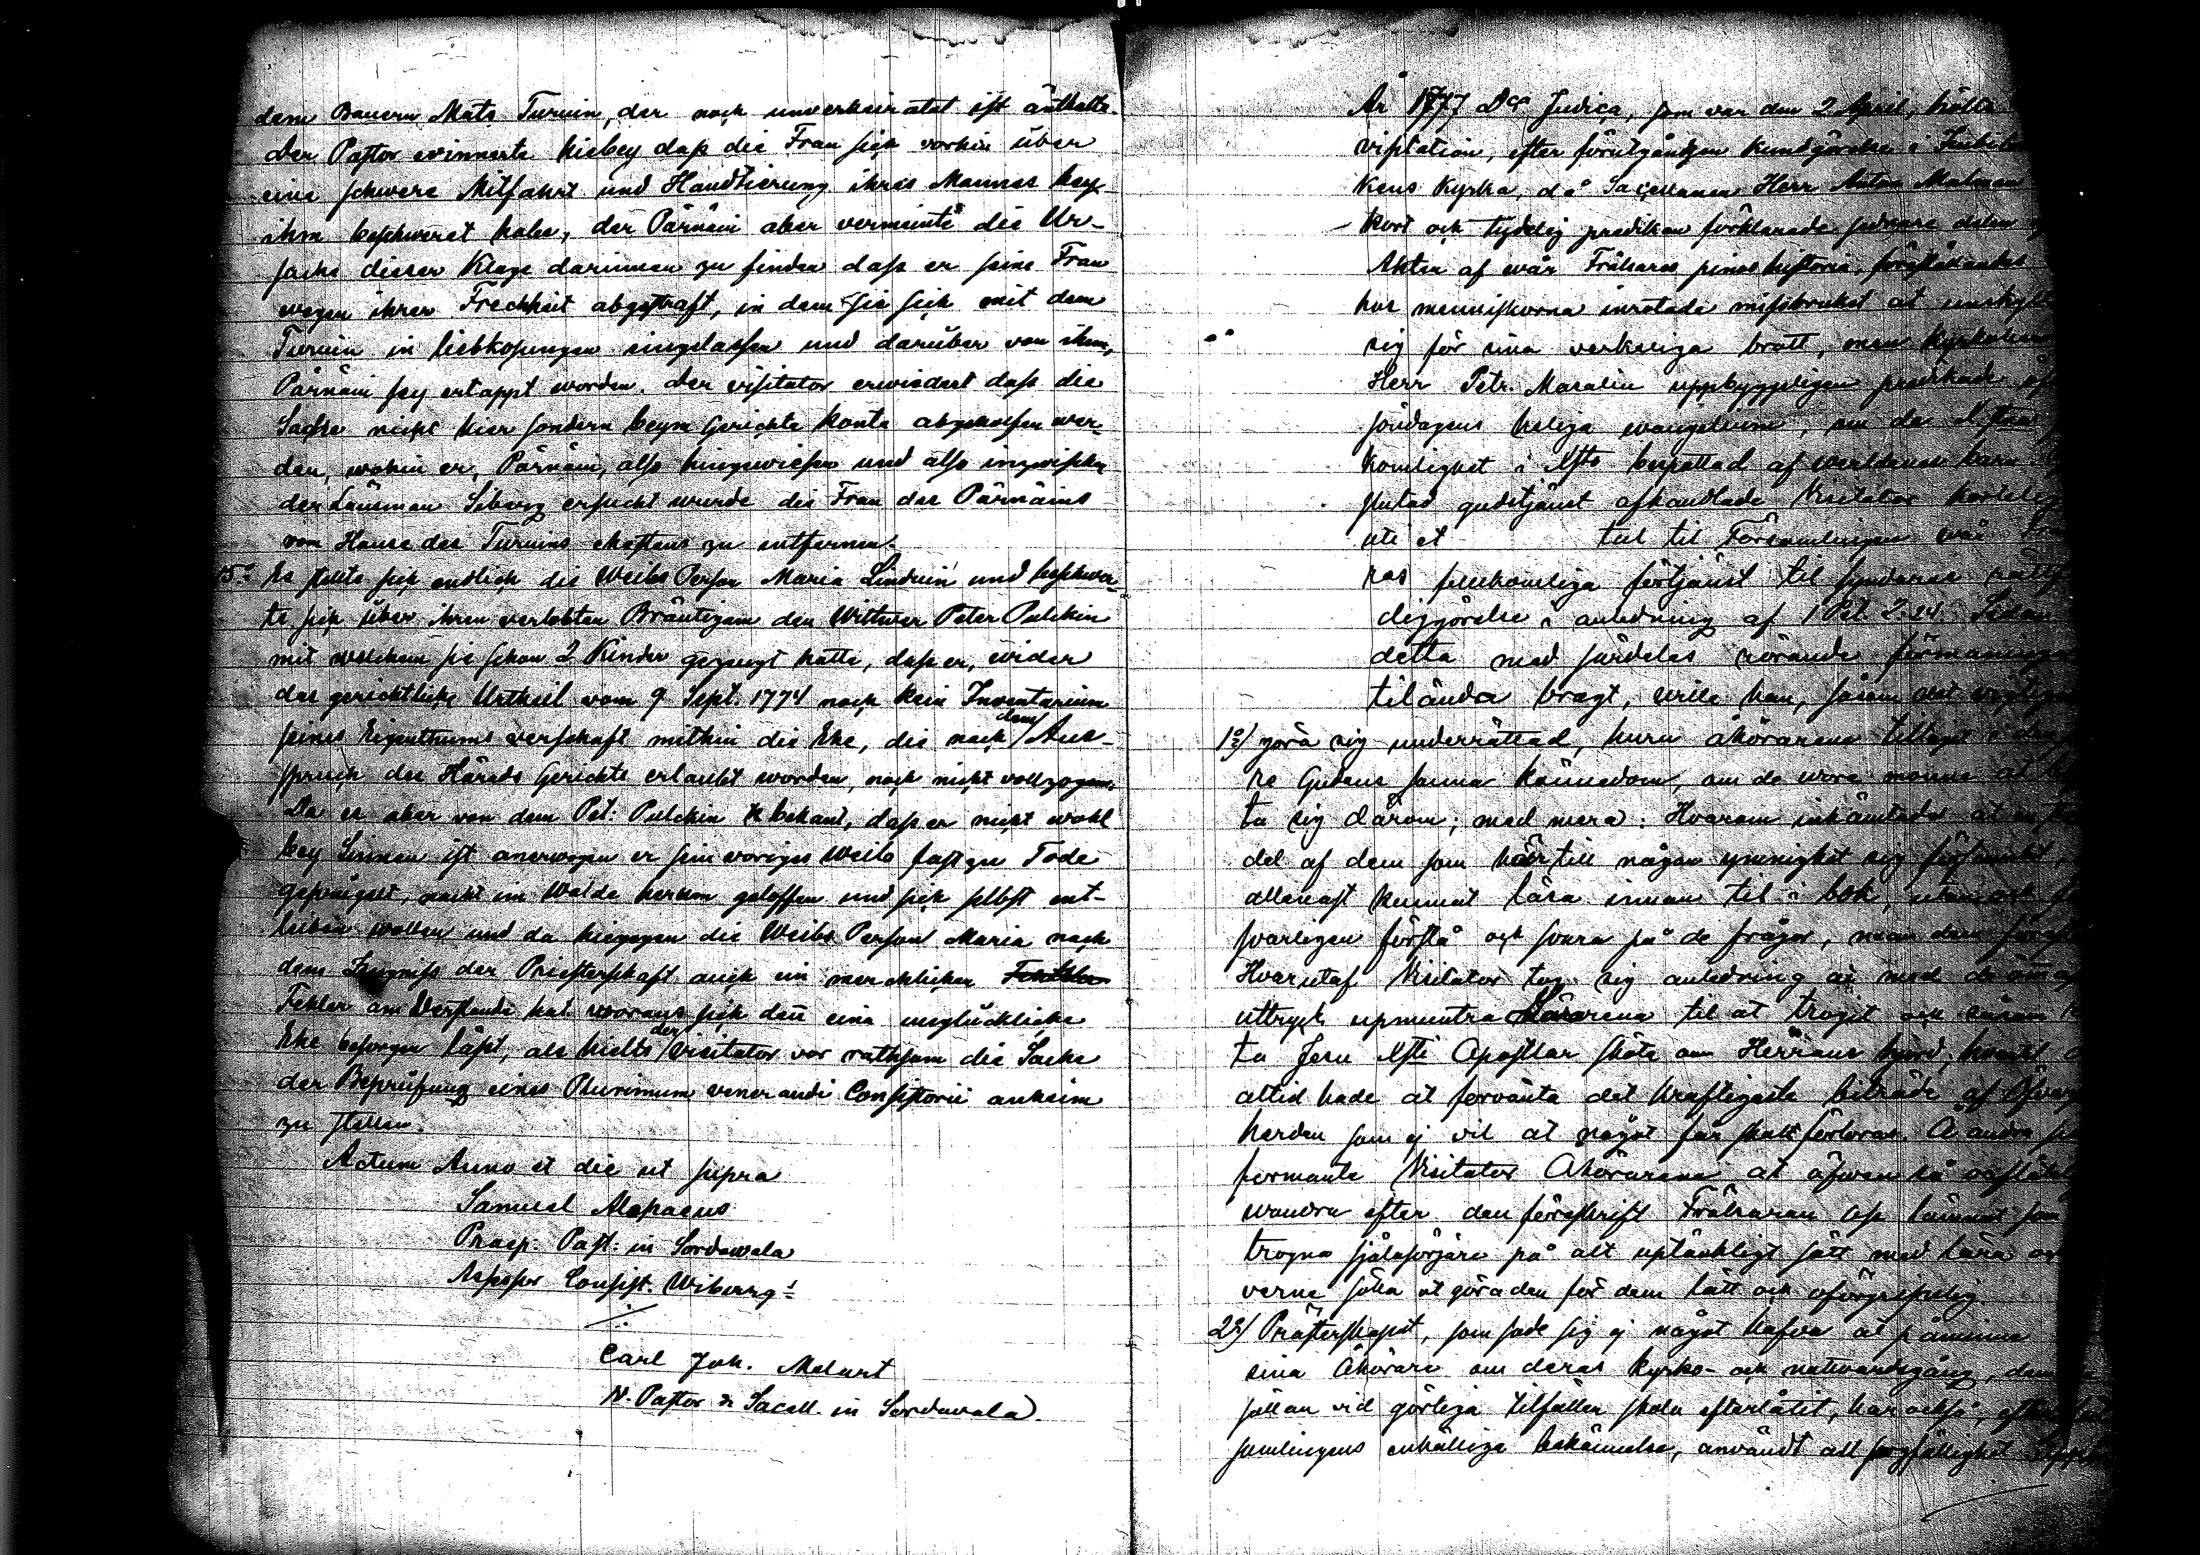 dem Bauern Mats Turuin, der noch unverheiratet ist aufhalte.
Der Pastor erinnerte hiebey dass die Frau sich vorhin über
eine schwere Mitfahrt und Handtierung ihres Mannes bey
ihm beschweret habe, der Pärnäin aber vermeinte die Ur-
sache dieser Klage darinnen zu finden dass er seine Frau
wegen ihrer Frechheit abgestraft, in dem sie sich mit dem
Turuin in liebkosungen eingelassen und darüber von ihm,
Pärnäin sey ertappt worden. Der visitator erwiedert dass die
Sache nicht hier sondern beym Gerichte konte abgeholfen wer-
den, wohin er, Pärnäin, also hingewiesen und also inzwischen
der Länsman Siberg ersucht wurde die Frau des Pärnäins
von Hause des Turuins ehestens zu entfernen.
15:o Es stellte sich endlich die Weibs Person Maria Lindruin und beschwer-
te sich über ihren verlobten Bräutigam den Wittwer Peter Pulckin
mit welchem sie schon 2 Kinder gezeugt hatte, dass er, wider
das gerichtliche Urtheil vom 9 Sept. 1774 noch kein Inventarium
seines Eigenthums verschaft mithin die Ehe, die nach dem Aus-
spruch des Härads Gerichts erlaubt worden, noch nicht vollzogen.
Da es aber von dem Pet: Pulckin bekant, dass er nicht wohl
bey Sinnen ist anerwogen er sein voriges Weib fast zu Tode
geprügelt, nackt im Walde herum geloffen und sich selbst ent-
leiben wollen und da hiegegen die Weibs Person Maria nach
dem Zeugniss der Priesterschaft auch ein mercklicher
Fehler am Verstande hat woraus sich dan eine unglückliche
Ehe besorgen läst, als hielte der Visitator vor rathsam die Sache
der Beprüfung eines Plurimum venerandi Consistorii anheim
zu stellen.
Actum Anno et die ut supra
Samuel Alopaeus
Praep. Past: in Sordawala
Assessor Consist. Wiburg:
Carl Joh. Melart
N. Pastor & Sacell. in Sordavala.
År 1777 Dca Judica, som var den 2 April, hölts
visitation, efter förutgången kundgörelse i
kens Kyrka, då Sacellanen Herr Anton
kort och tydelig predikan förklarade
Akten af wår Frälsares pinos historia, föreställandes
hos menniskorna inrotade missbruket at unskyll
sig för sina verkeliga brått, men
Herr Petr. Masalin uppbyggeligen predikade
söndagens heliga evangelium, om de
komlighet i Xsto bespottad af werldenes barn.
slutad gudstjänst afhandlade Visitator korteligen
uti et tal til Församlingen wår
res fullkomliga förtjänst til syndares rättf
digjörelse i anledning af 1 Pet. 2:24. Sedan
detta med särdeles rörande förmaningar
til ända bragt, wille han, såsom det
1:o/ göra sig underrättad, huru åhörarena tiltagit i den
re Gudens sanna kännedom, om de wore månne at
ta sig därom; med mera: Hvarom inhämtades at en
del af dem som här till någon ymnighet sig församlat,
allenast kunnat läsa innan til i bok, utan och
svarligen förstå och svara på de frågor, man dem
Hvarutaf Visitator tog sig anledning at med de
uttryck upmuntra Lärarena til at trogit och såsom
ta Jesu Xsti Apostlar sköta om Herrans hjord,
altid hade at förvänta det kraftigaste biträde af Öfver
herden som ej vil at något får skall förloras. Å andra
förmante Visitator Åhörarena at äfwen så
wandra efter den föreskrift Frälsaren oss lämnat som
trogna själasörjare på alt uptänkligt sätt med lära och
verne söka at göra den för dem lätt och oförgripelig.
2:o/ Prästerskapet, som sade sig ej något hafva at påminna
sina Åhörare om deras kyrko- och nattvardsgång, dem
sällan vid görliga tilfällen skola efterlåtit, har ock så, efter
samlingens enhälliga bekännelse, användt all sorgfällighet